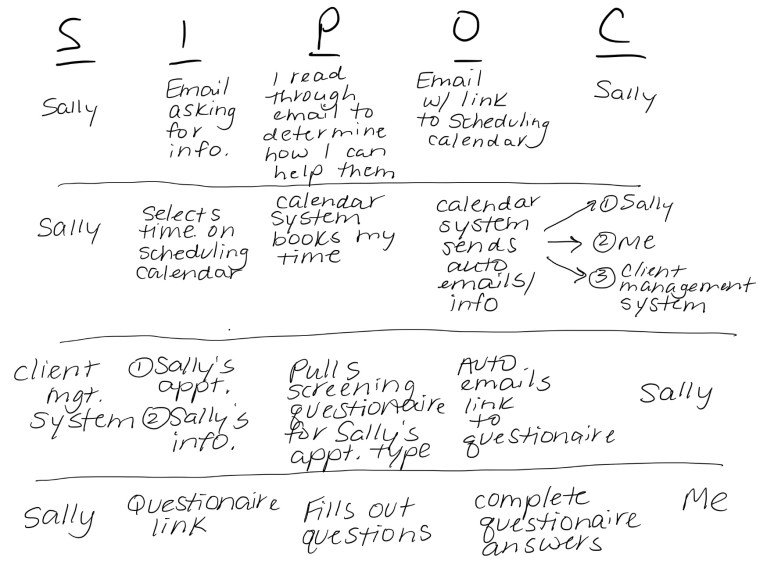 S I P O C
Sally
Email
asking
for
info.
I read
through
email to
determine
how I can
help them
Email
w/ link
to scheduling
calendar
Sally
Sally
Selects
time on
scheduling
calendar
calendar
system
books my
time
calendar
system
sends
auto
emails/
info
① Sally
② Me
③ Client
management
system
client
mgt.
system
① Sally's
appt.
② Sally's
info.
Pulls
screening
questionaire
for Sally's
appt. type
Auto
emails
link
to
questionaire
Sally
Sally
Questionaire
link
Fills out
questions
complete
questionaire
answers
Me